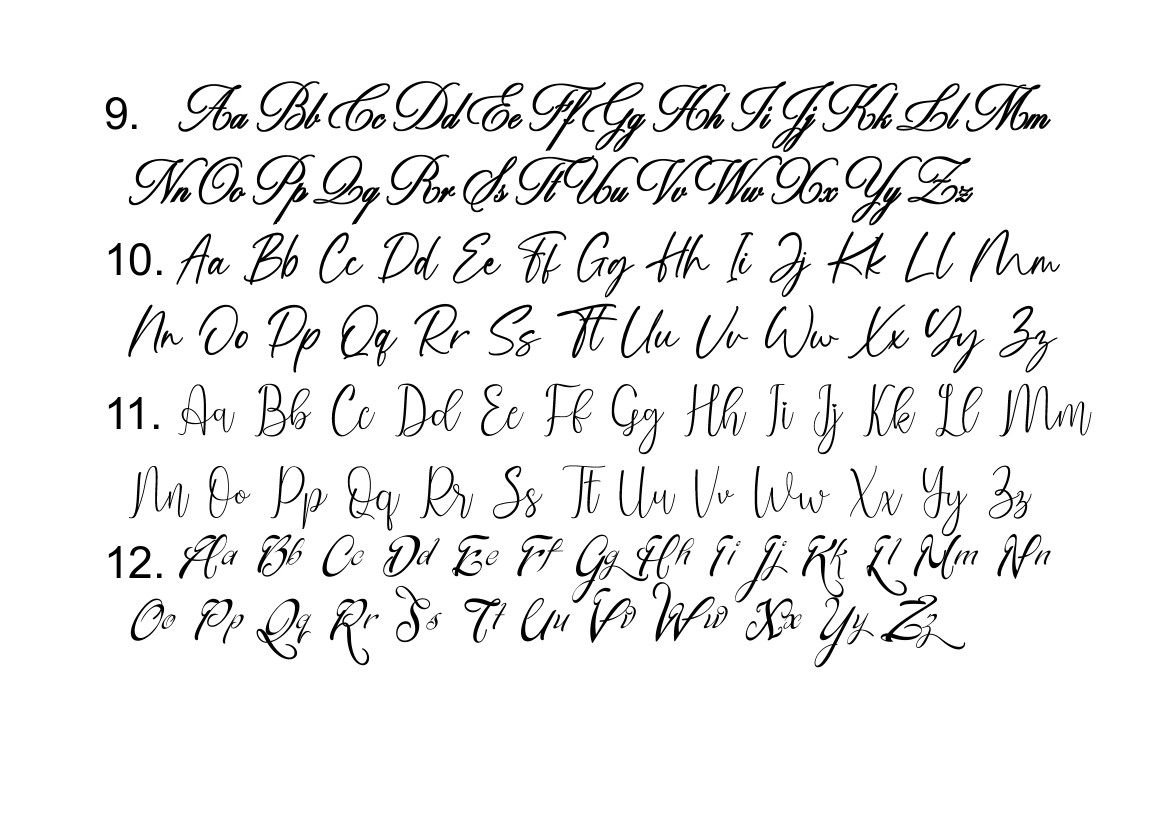 9. Aa Bb Cc Dd Ee Ff Gg Hh Ii Jj Kk Ll Mm
Nn Oo Pp Qq Rr Ss Tt Uu Vv Ww Xx Yy Zz
10. Aa Bb Cc Dd Ee Ff Gg Hh Ii Jj Kk Ll Mm
Nn Oo Pp Qq Rr Ss Tt Uu Vv Ww Xx Yy Zz
11. Aa Bb Cc Dd Ee Ff Gg Hh Ii Jj Kk Ll Mm
Nn Oo Pp Qq Rr Ss Tt Uu Vv Ww Xx Yy Zz
12. Aa Bb Cc Dd Ee Ff Gg Hh Ii Jj Kk Ll Mm Nn
Oo Pp Qq Rr Ss Tt Uu Vv Ww Xx Yy Zz